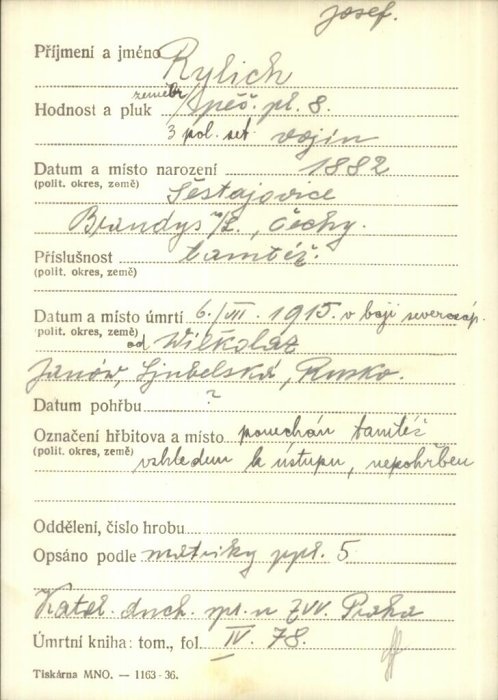 Josef.
Příjmení a jméno Rylich
zeměbr.
Hodnost a pluk pěš. pl. 8.
3 pol. set. vojín
Datum a místo narození 1882
(polit. okres, země) Šestajovice
Brandýs n/L., Čechy.
Příslušnost tamtéž.
(polit. okres, země)
Datum a místo úmrtí 6./VII. 1915. v boji severozáp.
(polit. okres, země) od Wilkolaz
Janów, Ljubelská, Rusko.
Datum pohřbu ?
Označení hřbitova a místo ponechán tamtéž
(polit. okres, země) vzhledem k ústupu, nepohřben
Oddělení, číslo hrobu
Opsáno podle matriky ppl. 5
Katol. duch. spr. u ZVV. Praha
Úmrtní kniha: tom., fol. IV. 78.
Tiskárna MNO. — 1163-36.